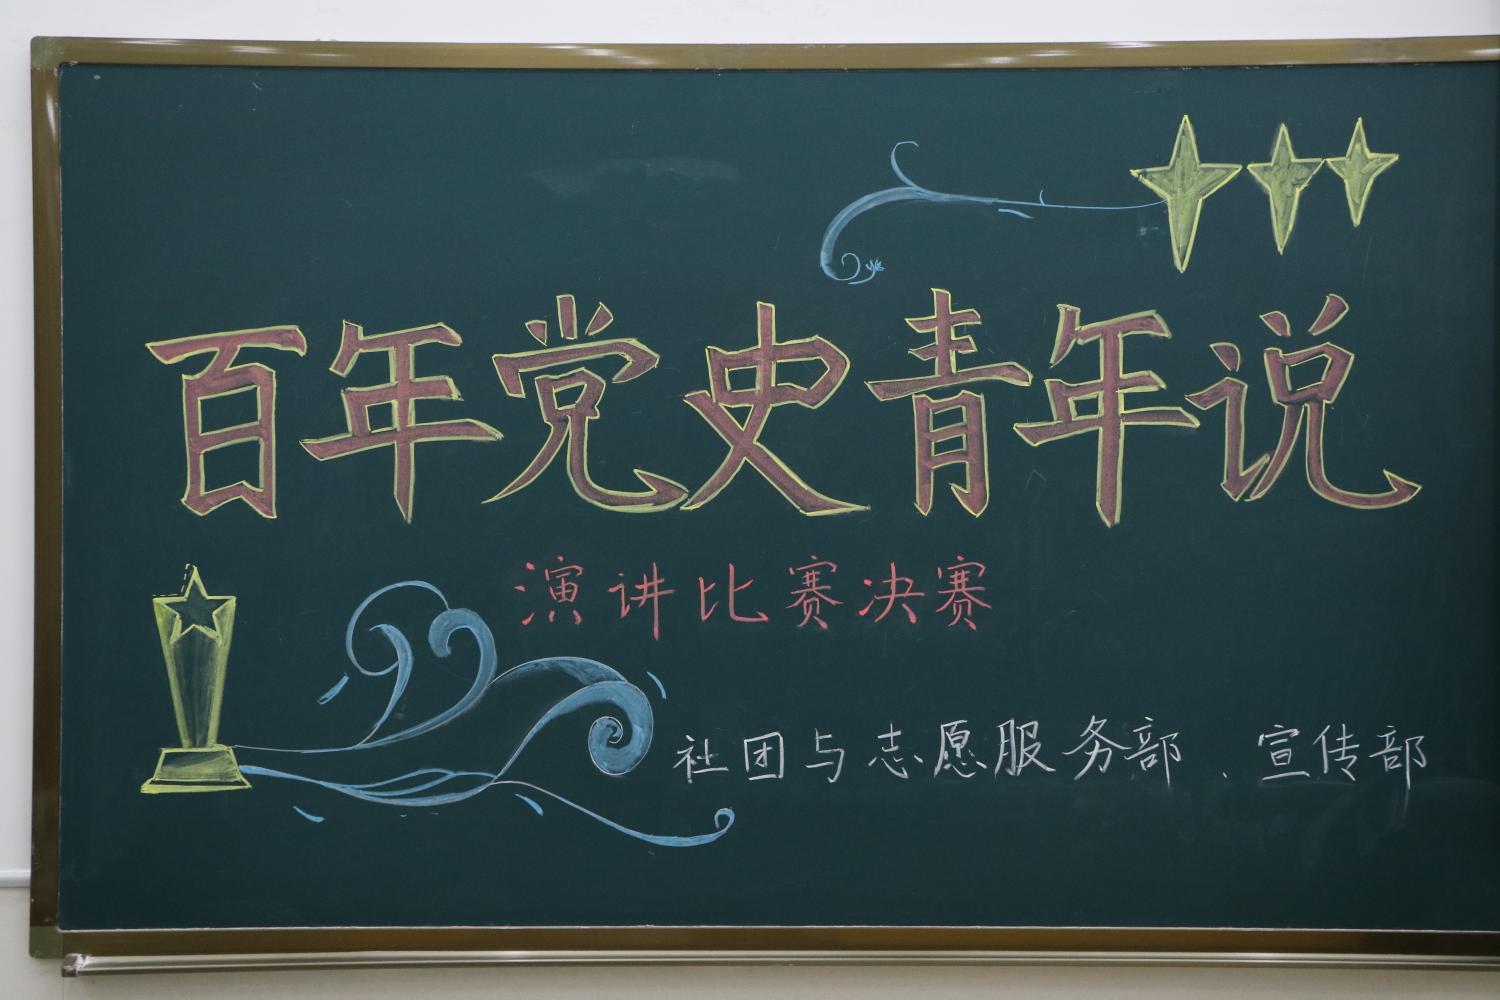 百年党史青年说
演讲比赛决赛
社团与志愿服务部、宣传部